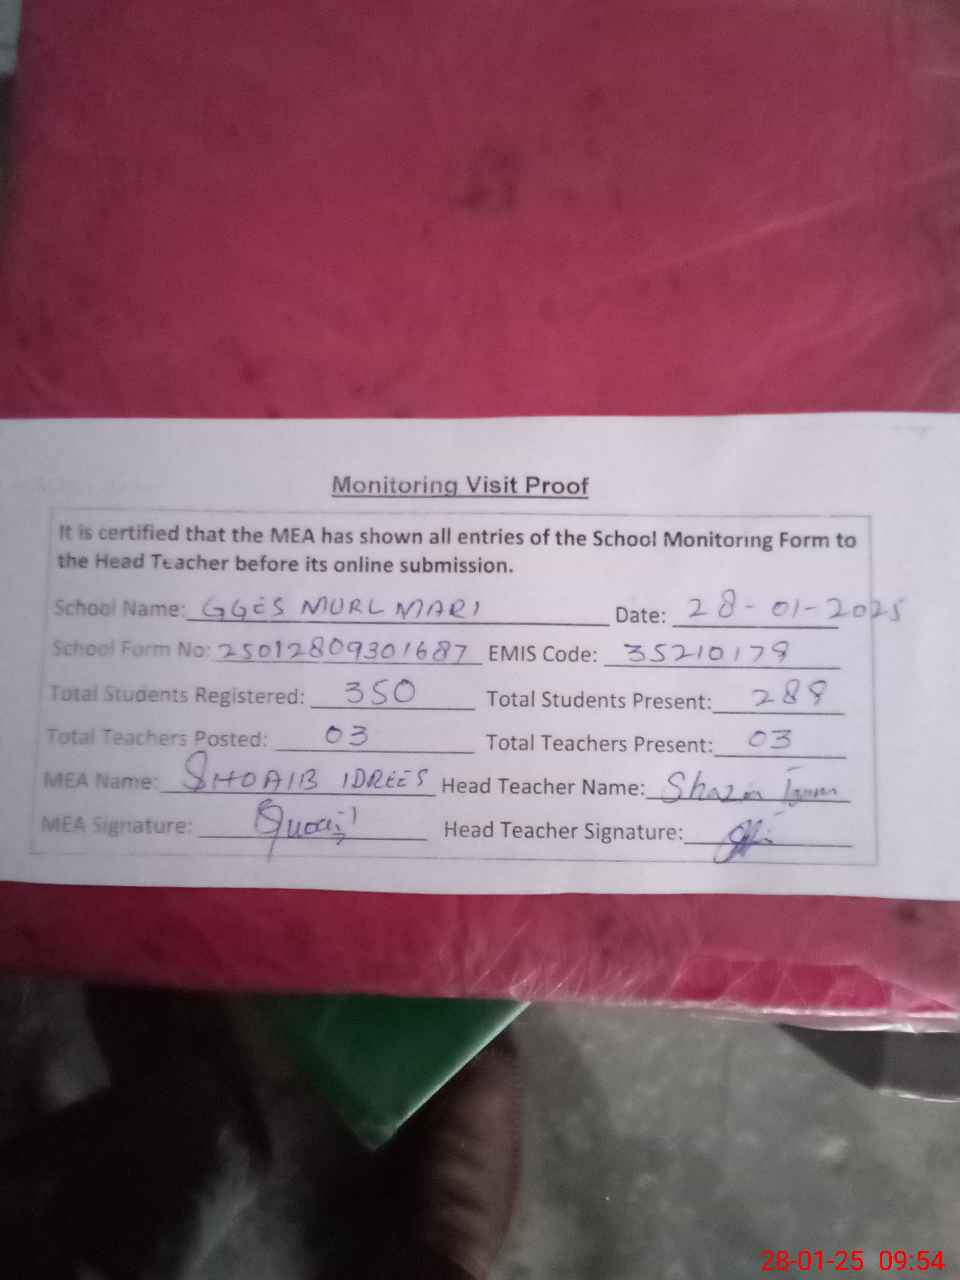 Monitoring Visit Proof
It is certified that the MEA has shown all entries of the School Monitoring Form to
the Head Teacher before its online submission.
School Name: GGES MURL MARI Date: 28-01-2025
School Form No: 25012809301687 EMIS Code: 35210179
Total Students Registered: 350 Total Students Present: 288
Total Teachers Posted: 03 Total Teachers Present: 03
MEA Name: SHOAIB IDREES Head Teacher Name: Shazia
MEA Signature: Head Teacher Signature:
28-01-25 09:54